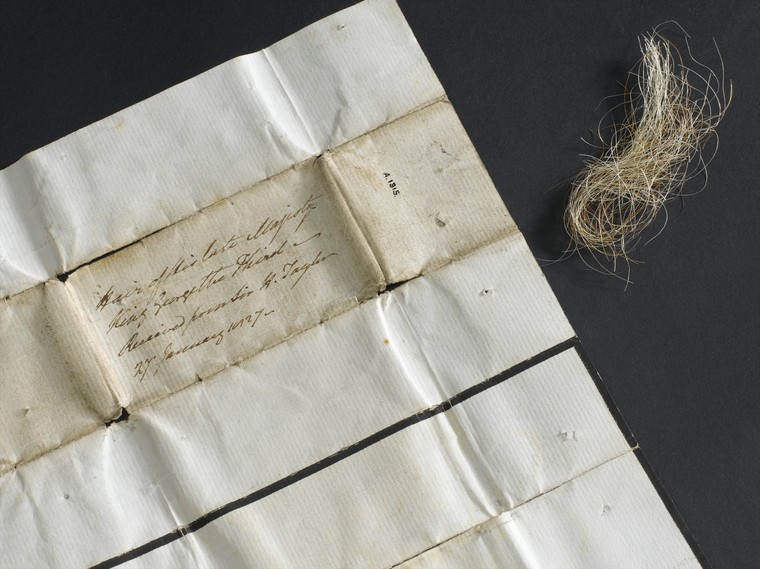 Hair of His late Majesty
King George the Third
Received from Sir H. Taylor
27. January 1827.
A.1315.